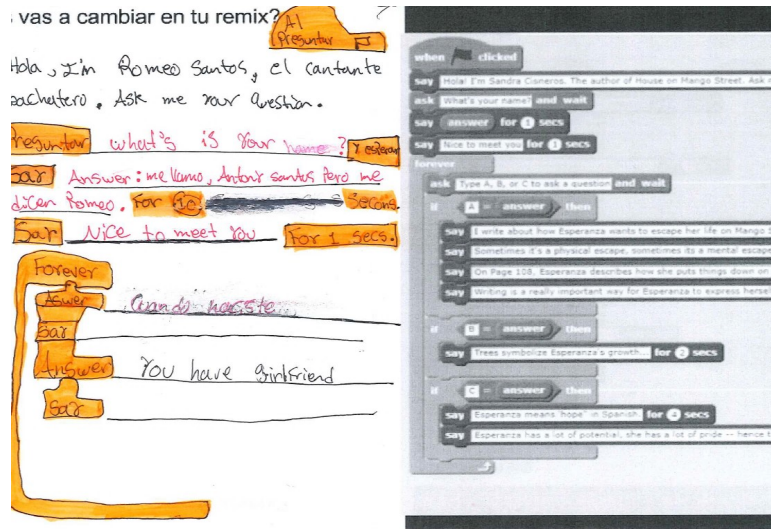 vas a cambiar en tu remix?
Al
Preguntar
Hola, I'm Romeo Santos, el cantante
bachatero. Ask me your Question.
Preguntar what's is your name? Y esperar
Sar Answer: me llamo, Antony santos Pero me
dicen Romeo. For 10 Secons.
Sar Nice to meet You For 1 secs.
Forever
Aswer Cuando naciste
Sar
Answer You have girlfriend
Sar
when clicked
say Hola! I'm Sandra Cisneros. The author of House on Mango Street. Ask
ask What's your name? and wait
say answer for 1 secs
say Nice to meet you for 1 secs
forever
ask Type A, B, or C to ask a question and wait
if A = answer then
say I write about how Esperanza wants to escape her life on Mango S
say Sometimes it's a physical escape, sometimes its a mental escape
say On Page 108, Esperanza describes how she puts things down on
say Writing is a really important way for Esperanza to express herself
if B = answer then
say Trees symbolize Esperanza's growth... for 2 secs
if C = answer then
say Esperanza means "hope" in Spanish. for 4 secs
say Esperanza has a lot of potential, she has a lot of pride -- hence t